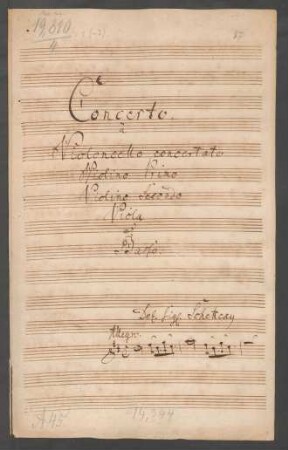 19,810
4
Concerto.
à
Violoncello concertato
Violino Primo
Violino Secondo
Viola
et
Basso.
Del Sigr. Schetky
Allegro.
A 45
14,344